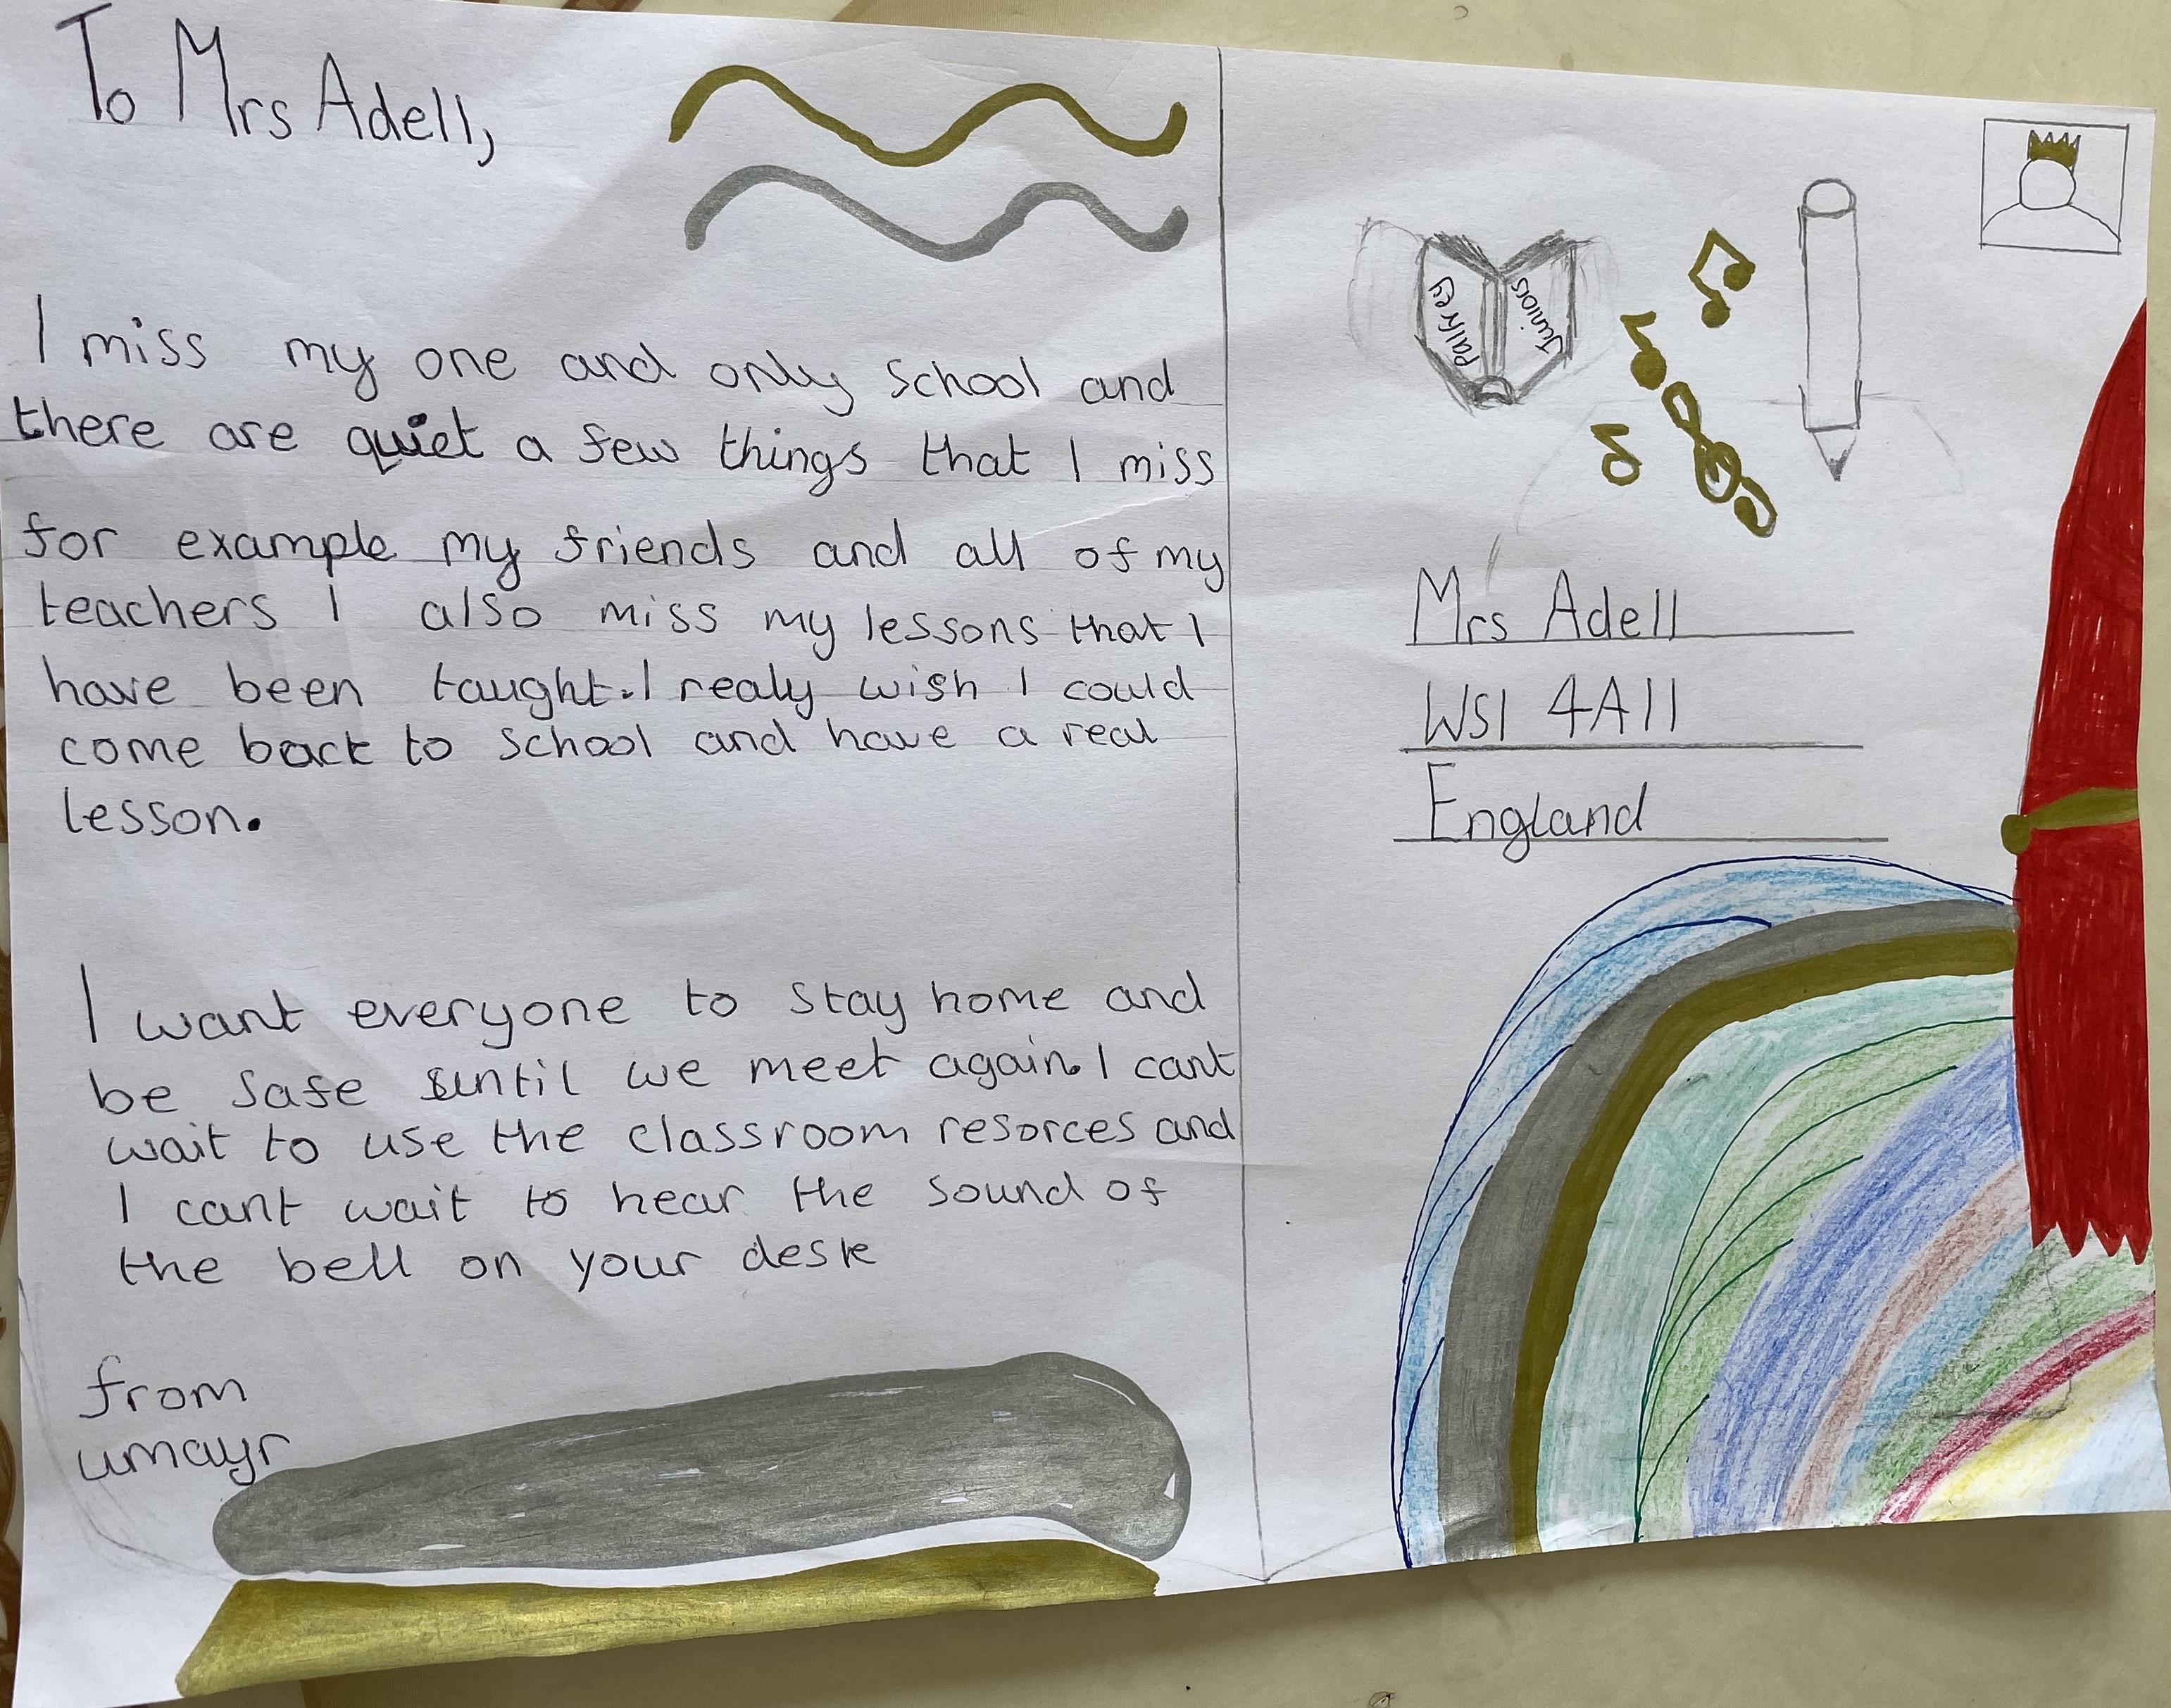 To Mrs Adell,
I miss my one and only school and
there are quiet a few things that I miss
for example my friends and all of my
teachers I also miss my lessons that I
have been taught. I realy wish I could
come back to school and have a real
lesson.
I want everyone to stay home and
be safe until we meet again. I cant
wait to use the classroom resorces and
I cant wait to hear the sound of
the bell on your desk
from
umayr
Palfrey
Juniors
Mrs Adell
WS1 4AH
England